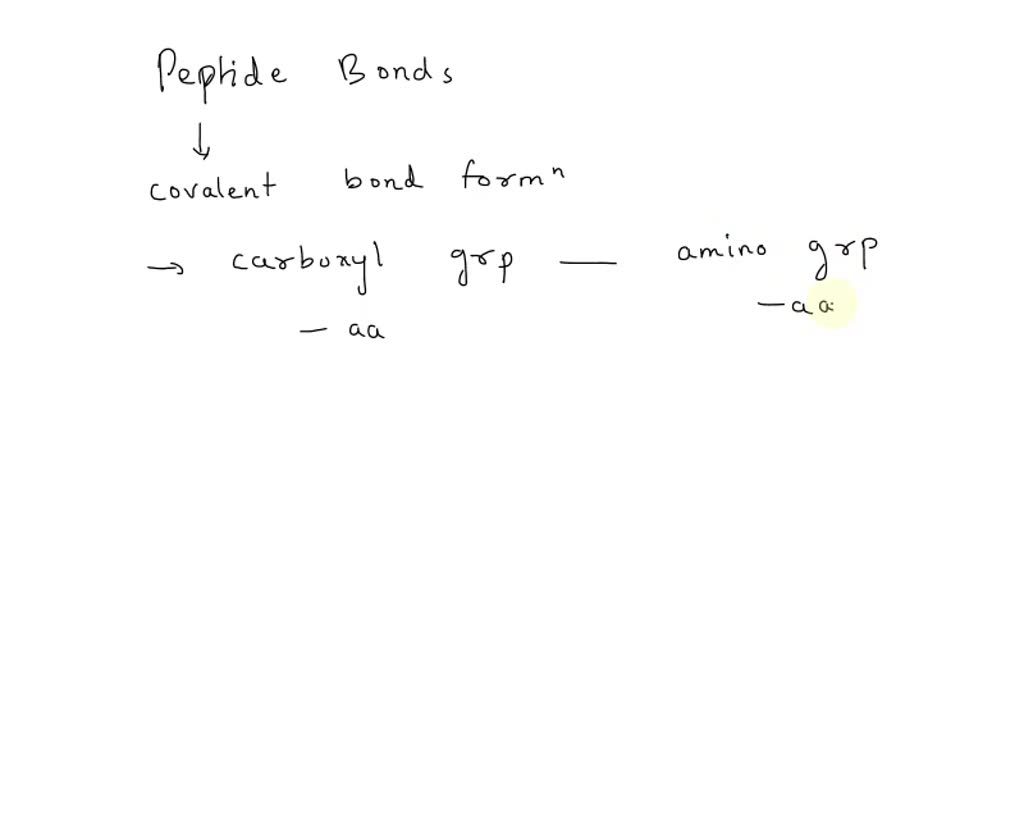 Peptide Bonds
↓
covalent bond formⁿ
→ carboxyl grp — amino grp
— aa — aa